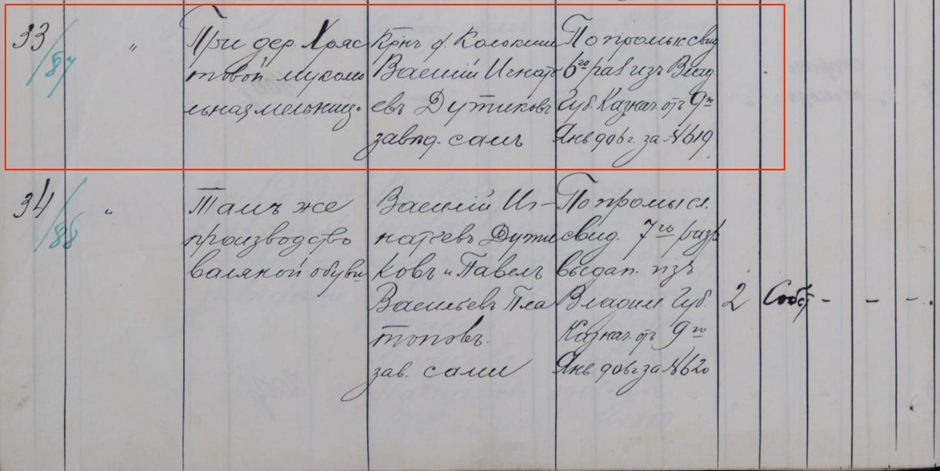 33
/87
"
При дер. Хряс
товой мукомо
льная мельниц.
Крнъ ф. Колокши
Василій Игнать
евъ Дутиковъ
завѣд. самъ
По промысл свид
6го раз изъ Влад
Губ. Казнач. отъ 9го
Янв 906 г. за № 619
34
/88
"
Тамъ же
производство
валяной обуви
Василій Иг-
натьевъ Дути
ковъ и Павелъ
Васильевъ Пла
тоновъ.
зав. сами
По промысл.
свид. 7го разр
выдан. изъ
Владим. Губ.
Казнач. отъ 9го
Янв 906 г. за № 620
2
Собст
- - -